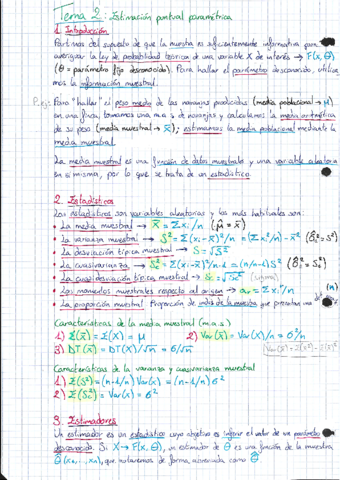 Tema 2: Estimación puntual paramétrica
1. Introducción
Partimos del supuesto de que la muestra es suficientemente informativa para
averiguar la ley de probabilidad teórica de una variable X de interés → F(x, θ)
(θ = parámetro fijo desconocido). Para hallar el parámetro desconocido, utiliza-
mos la información muestral.
P.ej: Para "hallar" el peso medio de las naranjas producidas (media poblacional → μ)
en una finca, tomamos una m.a.s de naranjas y calculamos la media aritmética
de su peso (media muestral → x̄); estimamos la media poblacional mediante la
media muestral.
La media muestral es una función de datos muestrales y una variable aleatoria
en sí misma, por lo que se trata de un estadístico.
2. Estadísticos
Los estadísticos son variables aleatorias y los más habituales son:
• La media muestral → X̄ = Σxᵢ/n (μ̂ = x̄)
• La varianza muestral → S² = Σ(xᵢ-x̄)²/n = (Σxᵢ²/n) - x̄² (σ̂² = S²)
• La desviación típica muestral → S = √S²
• La cuasivarianza → Sc² = Σ(xᵢ-x̄)²/n-1 = (n/n-1)S² (σ̂² = Sc²)
• La cuasidesviación típica muestral → Sc = √Sc²
• Los momentos muestrales respecto al origen → ar = Σxᵢʳ/n
• La proporción muestral. Proporción de inds de la muestra que presentan una
Características de la media muestral (m.a.s)
1) E(X̄) = E(X) = μ 2) Var(X̄) = Var(X)/n = σ²/n
3) DT(X̄) = DT(X)/√n = σ/√n Var(X) = E(X²) - E(X)²
Características de la varianza y cuasivarianza muestral
1) E(S²) = (n-1/n) Var(x) = (n-1/n) σ²
2) E(Sc²) = Var(x) = σ²
3. Estimadores
Un estimador es un estadístico cuyo objetivo es inferir el valor de un parámetro
desconocido. Si X → F(x, θ), un estimador de θ es una función de la muestra
θ̂(x₁, ..., xn), que denotaremos de forma abreviada como θ̂